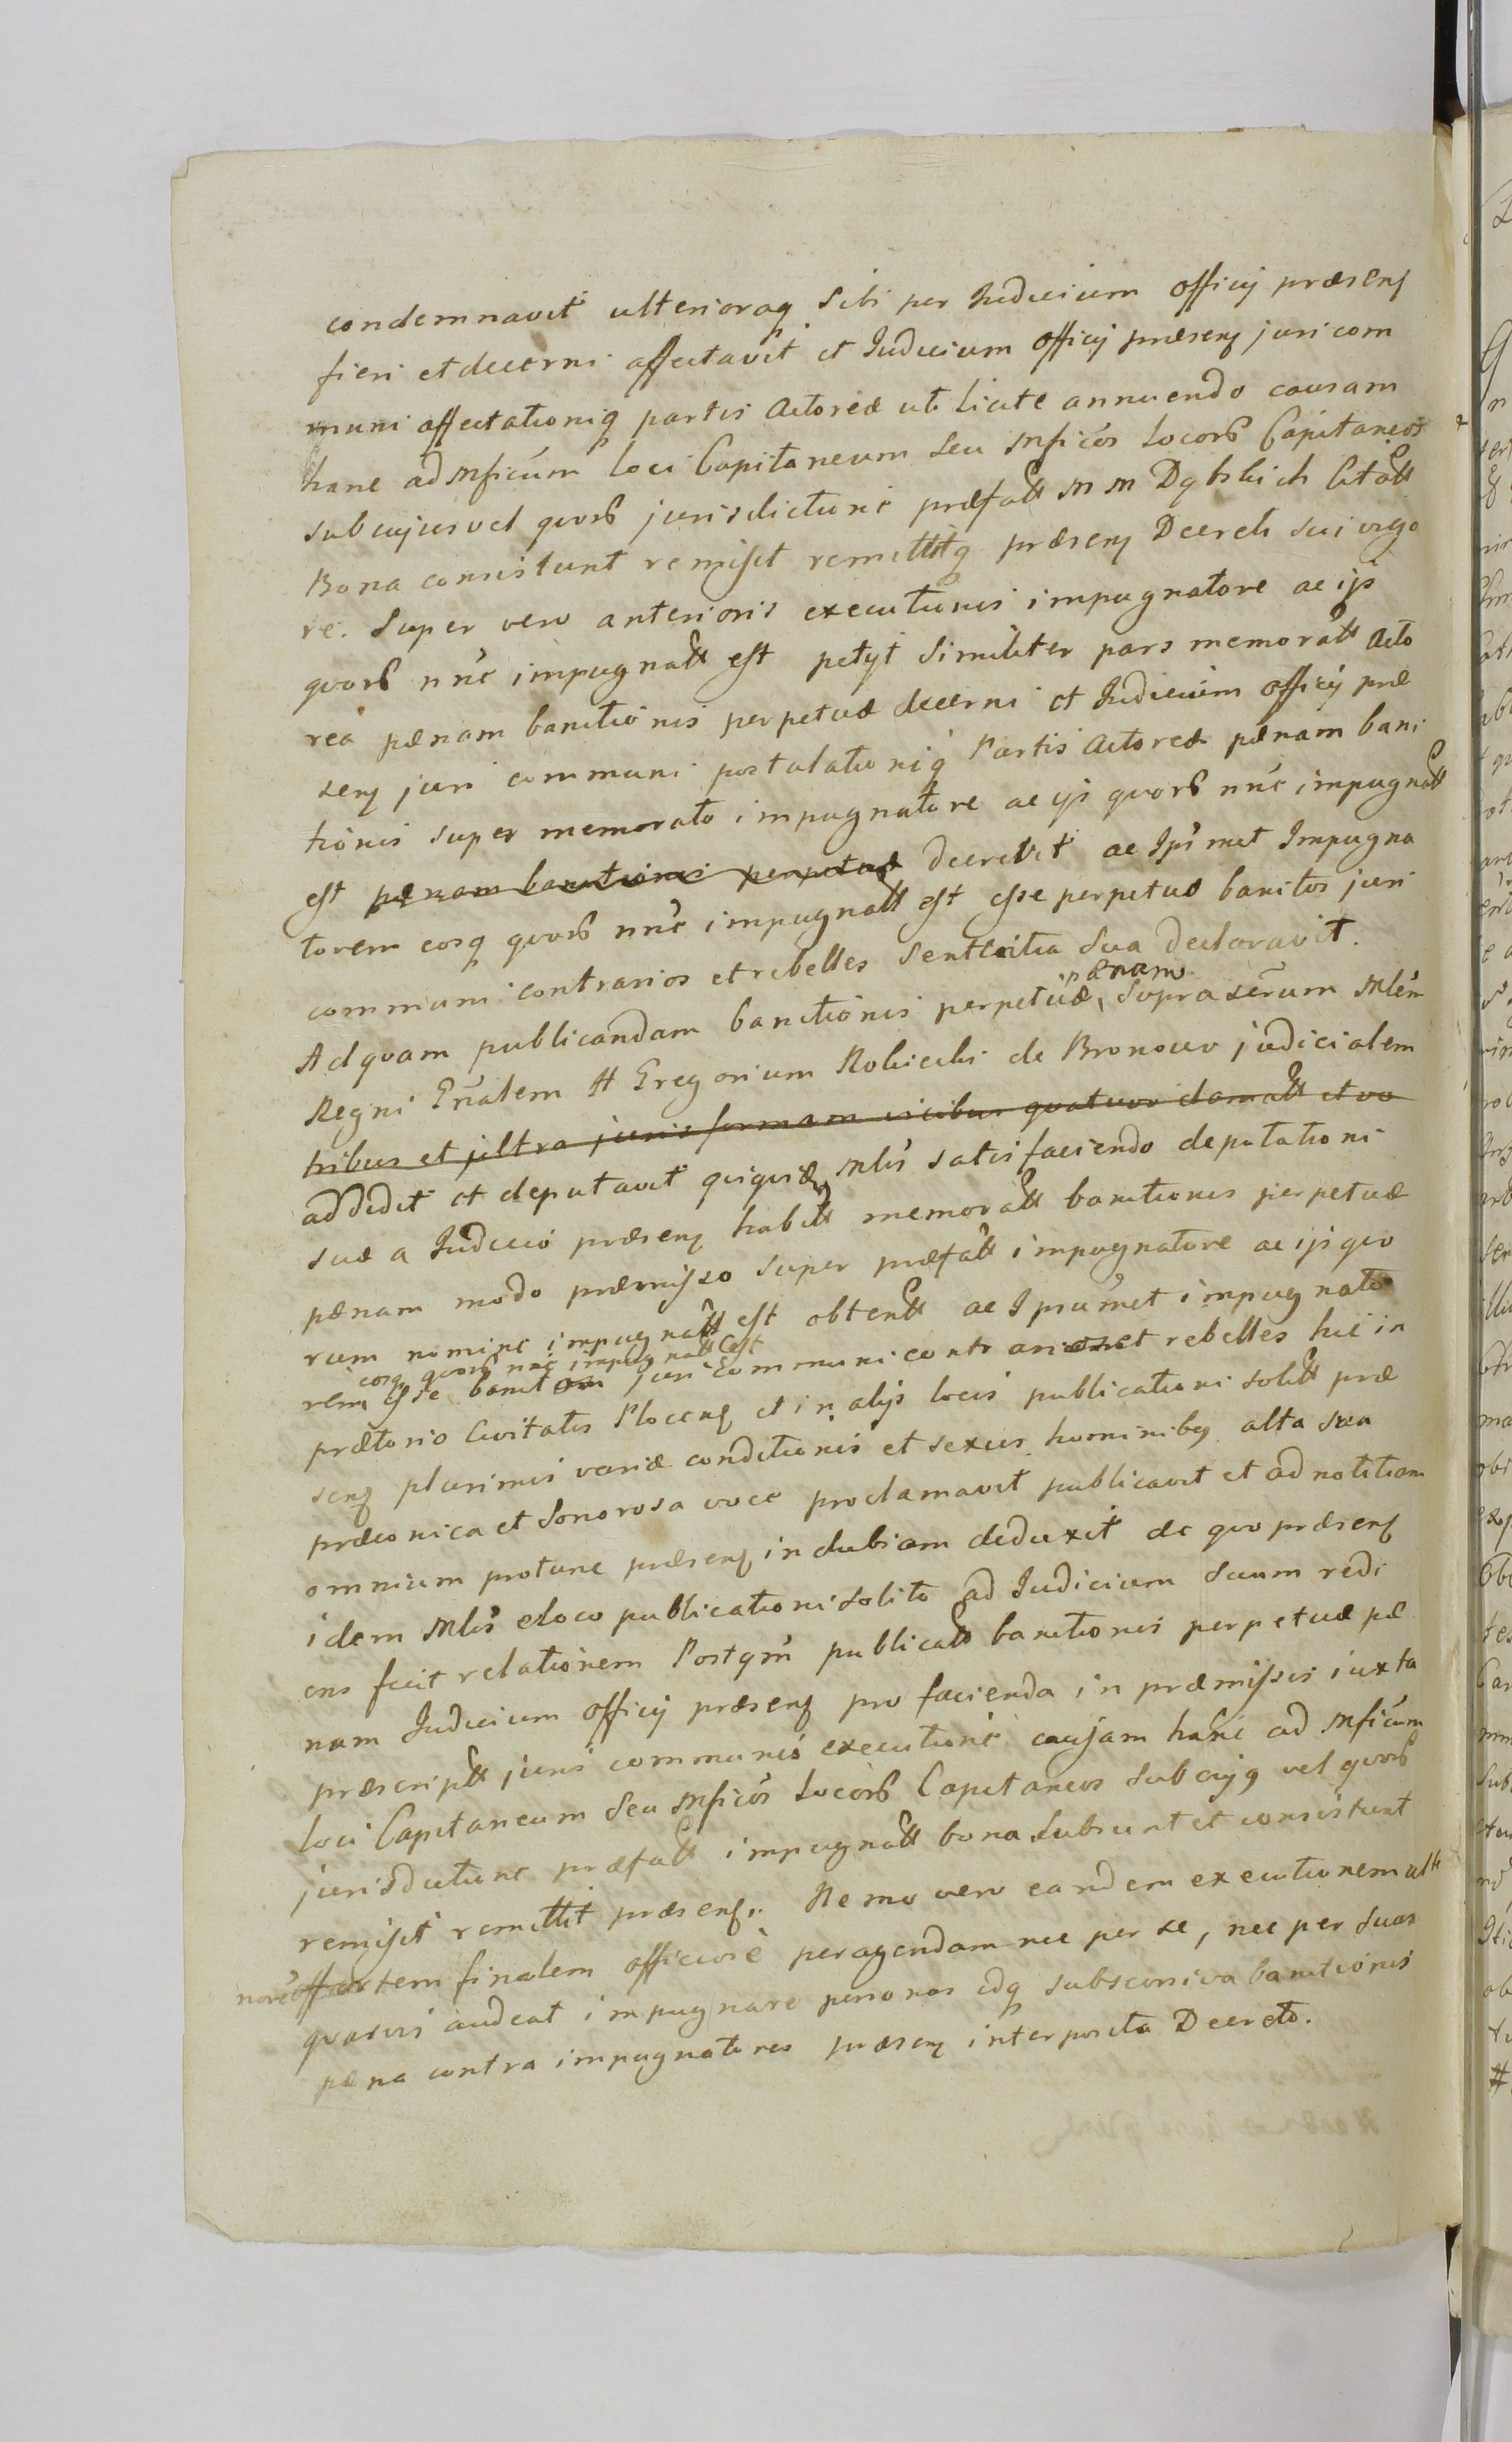 condemnavit ulterioraq sibi per Judicium officij præsenſ
fieri et decerni affectavit et Judicium officij præsenſ juri com
muni affectationiq partis Actoreæ uti licitæ annuendo causam
hanc ad Mficum loci Capitaneum seu Mficos locorũ Capitaneos
sub cujus vel quorũ jurisdictione præfatt MM Dąbskich Citatt
Bona consistunt remisit remittitq præsenſ Decreti sui vigo
re. Super vero anterioris executionis impugnatore ac ijs
quorũ nñe impugnatt est petijt similiter pars memoratt Acto
rea pænam banitionis perpetuæ decerni et Judicium officij præ
senſ juri communi postulationiq Partis Actoreæ pænam bani
tionis super memorato impugnatore ac ijs quorũ nñe impugnatt
est pænam banitionis perpetuæ decrevit ac Ipsmet Impugna
torem eosq quorũ nñe impugnatt est esse perpetuo banitos juri
communi contrarios et rebelles sententia sua declaravit.
Ad quam publicandam banitionis perpetuæ pænam supra scrum Mlem
Regni Gñalem # Gregorium Robiecki de Bronowo judicialem
tribus et ultra juris formam vicibus quatuor clamatt et vo
addidit et deputavit qui quidẽ Mlis satisfaciendo deputationi
suæ a Judicio præsenſ habitt memoratt banitionis perpetuæ
pænam modo præmisso super præfatt impugnatore ac ijs quo
rum nomine impugnatt est obtentt ac Ipsummet impugnato
eosq quorũ nñe impugnatt est
rem esse banitos juri communi contrarios et rebelles hic in
prætorio Civitatis Plocenſ et in alijs locis publicationi solitt præ
senſ plurimis variæ conditionis et sexus hominibq alta sua
præconica et sonorosa voce proclamavit publicavit et ad notitiam
omnium protunc præsenſ indubiam deduxit de quo præsenſ
idem Mlis e loco publicationi solito ad Judicium suum redi
ens fecit relationem Postqm publicatt banitionis perpetuæ pæ
nam Judicium officij præsenſ pro facienda in præmissis iuxta
præscriptt juris communis executione causam hanc ad Mficum
loci Capitaneum seu Mficos locorũ Capitaneos sub cujq vel quorũ
jurisdictione præfatt impugnatt bona subsunt et consistunt
remisit remittit præsenſ. Nemo vero eandem executionem
partem finalem officiose peragendam nec per se, nec per suas
quasvis audeat impugnare personas idq sub sconiva banitionis
pæna contra impugnatores præsenſ interposita Decreto.